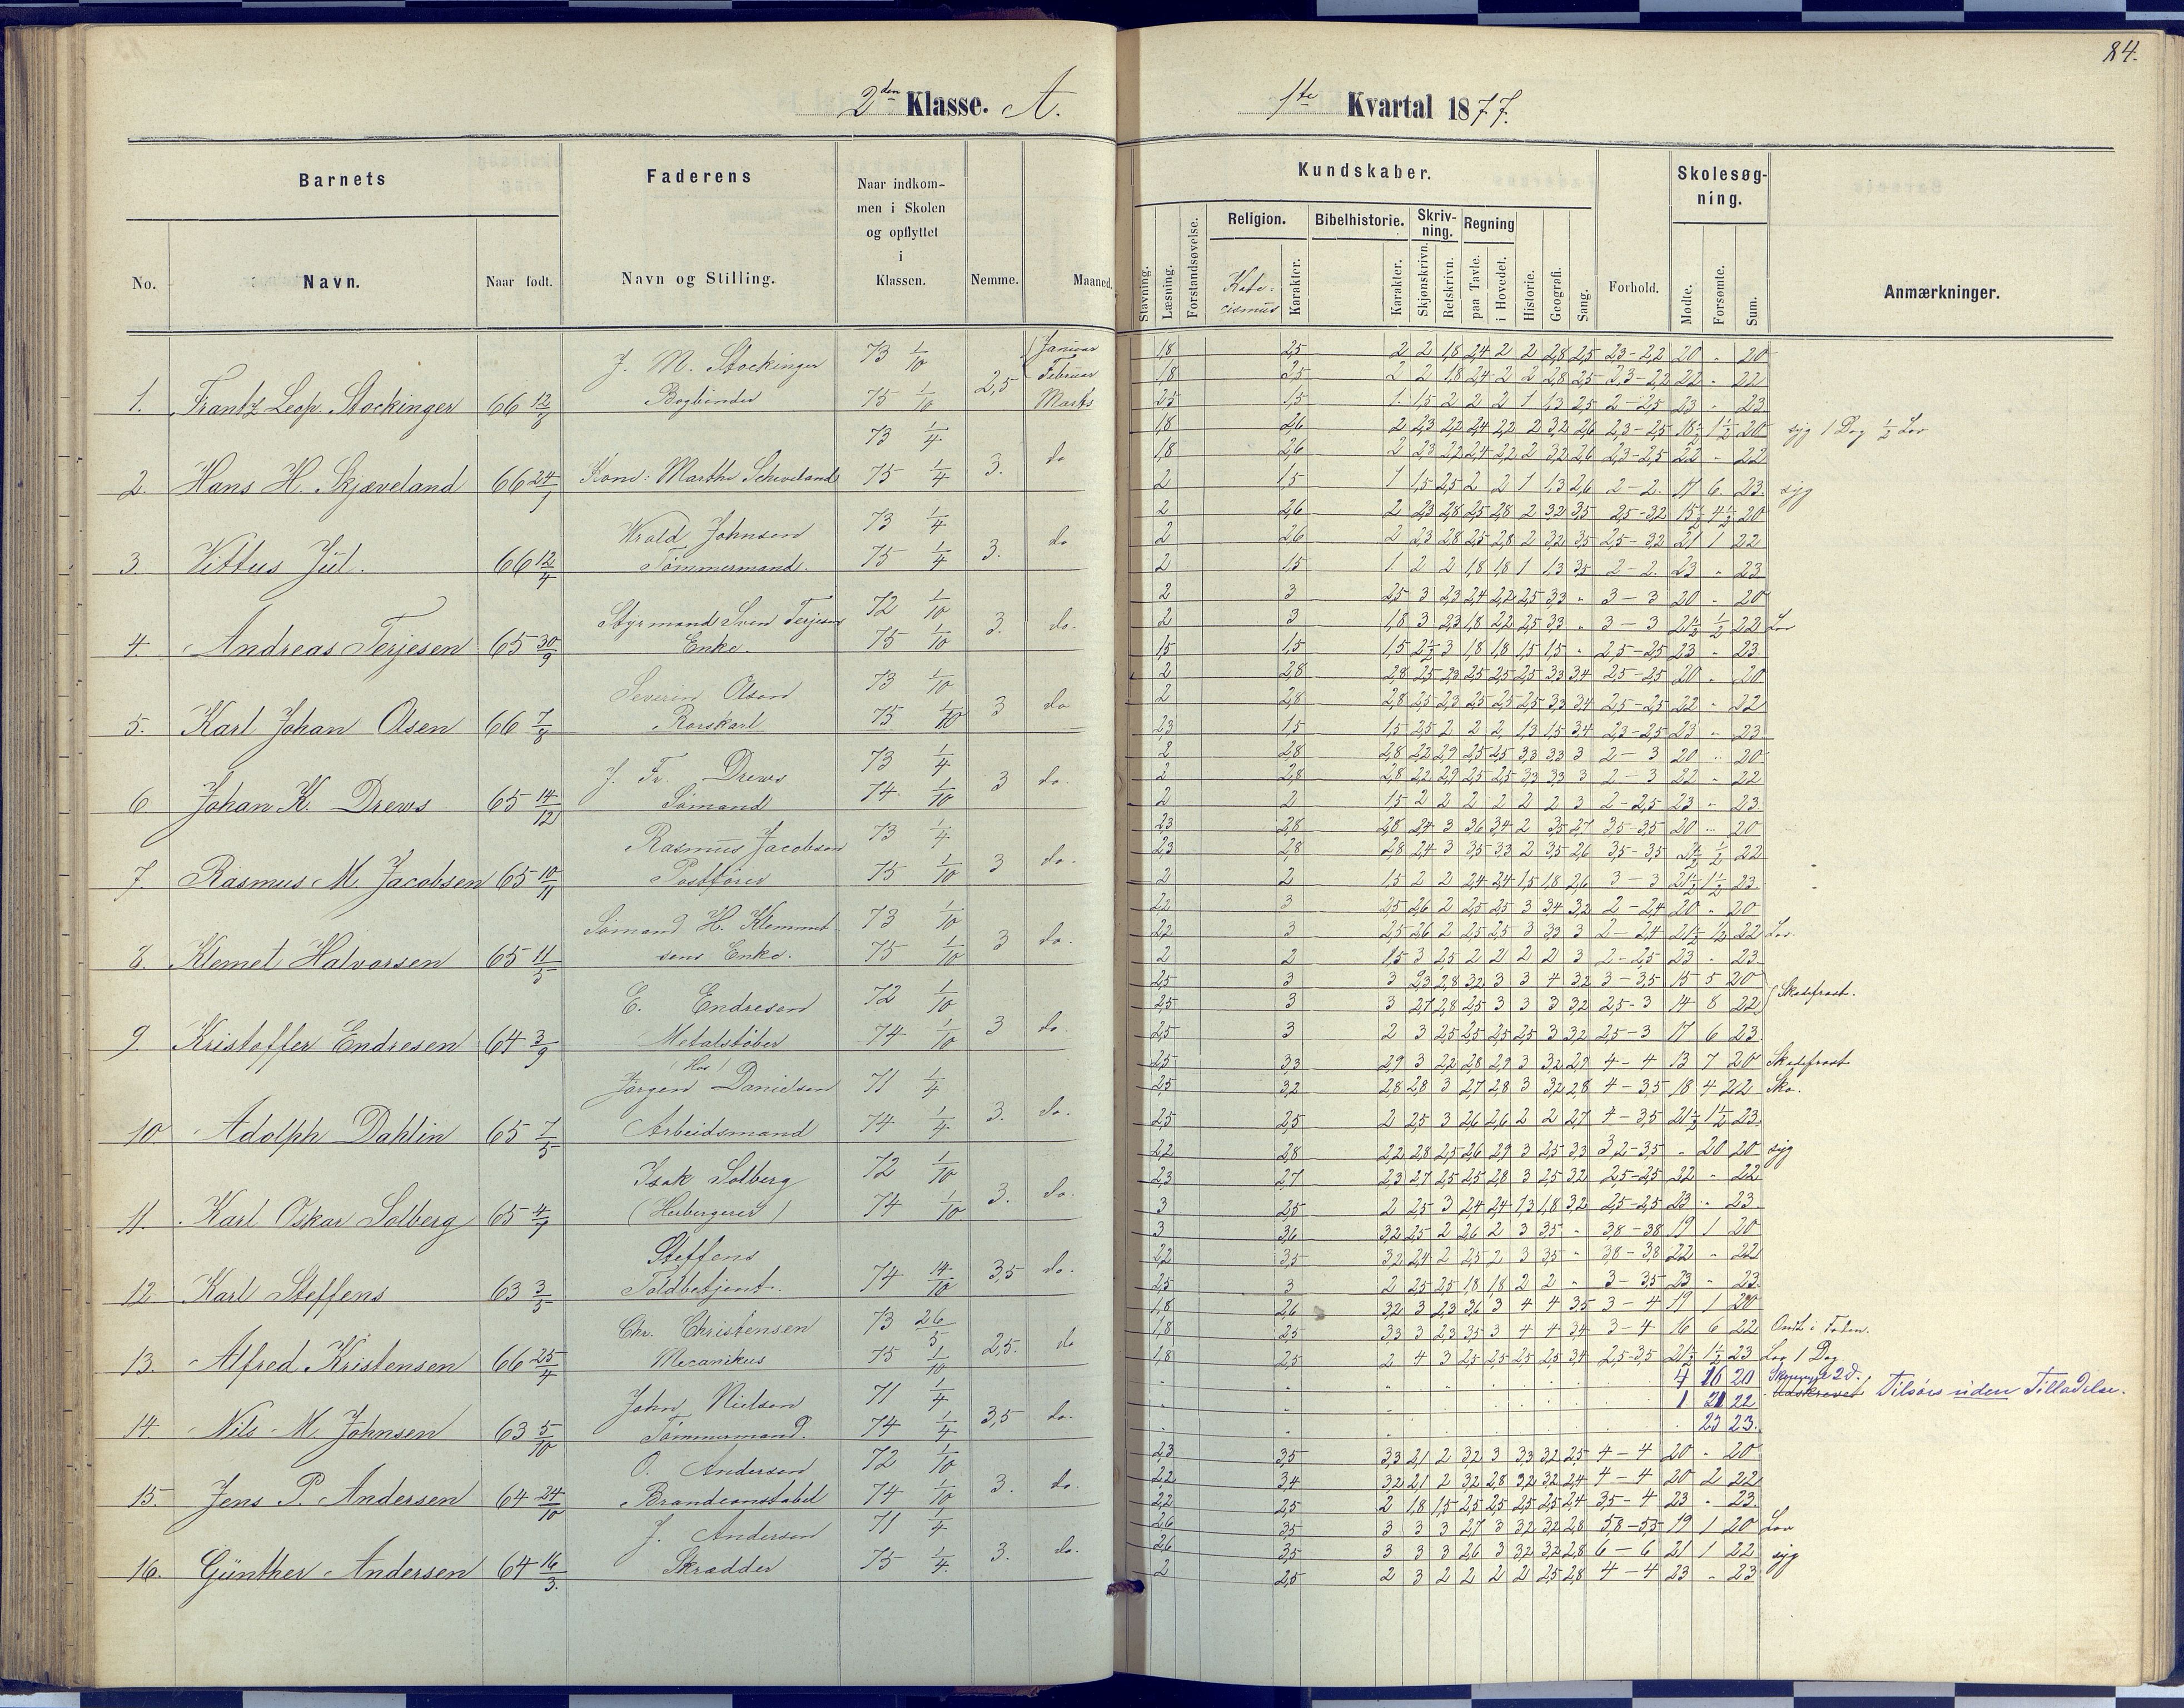 84.
2den Klasse. A.
1ste Kvartal 1877.
Barnets
Faderens
Naar indkom-
men i Skolen
og opflyttet
i
Klassen.
No.
Navn.
Naar født.
Navn og Stilling.
Nemme.
Maaned.
Kundskaber.
Skolesøg-
ning.
Religion.
Bibelhistorie.
Skriv-
ning.
Regning
Stavning.
Læsning.
Forstandsøvelse.
Kate-
cismus
Karakter.
Karakter.
Skjønskrivn.
Retskrivn.
paa Tavle.
i Hovedet.
Historie.
Geografi.
Sang.
Forhold.
Mødte.
Forsømte.
Sum.
Anmærkninger.
J. M. Stockinger 73 1/10 Januar
Februar
1. Frantz Leop. Stockinger 66 12/8 Bogbinder 75 1/10 2,5 Marts
73 1/4
2. Hans H. Skjæveland 66 24/9 Kone: Marthe 75 1/4 3. do
Johnsen 73 1/4
3. Vittus Jul. 66 12/4 Tømmermand. 75 1/4 3. do
Styrmand Sven Terjesen 72 1/10
4. Andreas Terjesen 65 30/9 Enke. 75 1/10 3. do.
Severin Olsen 73 1/10
5. Karl Johan Olsen 66 7/8 Rorskarl 75 1/10 3 do
J. Fr. Drews 73 1/4
6. Johan K. Drews 65 14/12 Sømand 74 1/10 3 do.
Rasmus Jacobsen 73 1/4
7. Rasmus M. Jacobsen 65 10/11 Postfører 75 1/10 3 do.
Sømand H. Klemmet- 73 1/10
8. Klemet Halvorsen 65 11/5 sens Enke. 75 1/10 3 do.
E. Endresen 72 1/10
9. Kristoffer Endresen 64 3/9 Metalstøber 74 1/10 3 do.
(Hos)
Jørgen Danielsen 71 1/4
10 Adolph Dahlin 65 7/5 Arbeidsmand 74 1/4 3. do.
Isak Solberg 72 1/10
11. Karl Oskar Solberg 65 4/9 (Herbergerer) 74 1/10 3. do.
Steffens
12. Karl Steffens 63 3/5 Toldbetjent. 74 14/10 3,5 do.
Chr. Christensen 73 26/5
13. Alfred Kristensen 66 25/4 Mecanikus 75 1/10 2,5. do
John Nielsen 71 1/4
14. Nils M. Johnsen 63 5/10 Tømmermand. 74 1/4 3,5 do.
O. Andersen 72 1/10
15. Jens P. Andersen 64 24/10 Brandconstabel 74 1/10 3. do.
J. Andersen 71 1/4
16. Günther Andersen 64 16/3. Skrædder 75 1/4 3. do.
1,8 2,5 2 2 1,8 2,4 2 2 2,8 2,5 2,3-2,2 20 " 20
1,8 2,5 2 2 1,8 2,4 2 2 2,8 2,5 2,3-2,2 22 " 22
2,5 1,5 1. 1,5 2 2 2 1 1,3 2,5 2-2,5 23 " 23
1,8 2,6 2 2,3 2,2 2,4 2,2 2 3,2 2,6 2,3-2,5 18½ 1½ 20 syg 1 Dag ½ Lov
1,8 2,6 2 2,3 2,2 2,4 2,2 2 3,2 2,6 2,3-2,5 22 " 22
2 1,5 1 1,5 2,5 2 2 1 1,3 2,6 2-2. 17 6. 23. syg
2 2,6 2 2,3 2,8 2,5 2,8 2 3,2 3,5 2,5-3,2 15½ 4½ 20
2 2,6 2 2,3 2,8 2,5 2,8 2 3,2 3,5 2,5-3,2 21 1 22
2 1,5 1. 2 2 1,8 1,8 1 1,3 3,5 2-2. 23 " 23
2 3 2,5 3 2,3 2,4 2,2 2,5 3,3 " 3-3 20 " 20
2 3 1,8 3 2,3 1,8 2,2 2,5 3,3 " 3-3 21½ ½ 22 Lov
1,5 1,5 1,5 2½ 3 1,8 1,8 1,5 1,5 " 2,5-2,5 23 " 23.
2 2,8 2,8 2,5 2,3 2,5 2,5 2,5 3,3 3,4 2,5-2,5 20 " 20
2 2,8 2,8 2,5 2,3 2,5 2,5 2,5 3,3 3,4 2,5-2,5 22 " 22
2,3 1,5 1,5 2,5 2 2 2 1,3 1,5 3,4 2,3-2,5 23 " 23
2 2,8 2,8 2,2 2,9 2,5 2,5 3,3 3,3 3 2-3 20 " 20
2 2,8 2,8 2,2 2,9 2,5 2,5 3,3 3,3 3 2-3 22 " 22
2 2 1,5 2 2 2 2 2 2 3 2-2,5 23 " 23
2,3 2,8 2,8 2,4 3 3,6 3,4 2 3,5 2,7 3,5-3,5 20 " 20
2,3 2,8 2,8 2,4 3 3,5 3,3 2 3,5 2,6 3,5-3,5 21½ ½ 22
2 2 1,5 2 2 2,4 2,4 1,5 1,8 2,6 3-3 21½ 1½ 23.
2,2 3 2,5 2,6 2 2,5 2,5 3 3,4 3,2 2-2,4 20 " 20
2,2 3 2,5 2,6 2 2,5 2,5 3 3,3 3 2-2,4 21½ ½ 22 Lov.
2 2 1,5 3 2,5 2 2 2 2 3 2-2,5 23 " 23
2,5 3 3 2,3 2,8 3,2 3 3 4 3,2 3-3,5 15 5 20
2,5 3 3 2,7 2,8 2,5 3 3 3 3,2 2,5-3 14 8 22 Skadefrost.
2,5 3 2 3 2,5 2,5 2,5 2,5 3 3,2 2,5-3 17 6 23
2,5 3,3 2,9 3 2,2 2,8 2,9 3 3,2 2,9 4-4 13 7 20 Skadefrost
2,5 3,2 2,8 2,8 3 2,7 2,8 3 3,2 2,8 4-3,5 18 4 22 Sko.
2,5 2,5 2 2,5 3 2,6 2,6 2 2 2,7 4-3,5 21½ 1½ 23.
2,2 2,8 2,2 2,8 2,5 2,6 2,9 3 2,5 3,3 3,2-3,5 " 20 20 syg
2,3 2,7 2,3 2,7 2,5 2,5 2,8 3 2,5 3,2 2,5-2,5 22 " 22
3 2,5 2 2,5 3 2,4 2,4 1,3 1,8 3,2 2,5-2,5 23 " 23
3 3,6 3,2 2,5 2 2,6 2 3 3,5 " 3,8-3,8 19 1 20
2,2 3,5 3,2 2,4 2 2,5 2 3 3,5 " 3,8-3,8 22 " 22
2,5 3 2 2,5 2,5 1,8 1,8 2 2 " 3-3,5 23 " 23
1,8 2,6 3,2 3 2,3 3,6 3 4 4 3,5 3-4 19 1 20
1,8 2,5 3,3 3 2,3 3,5 3 4 4 3,4 3-4 16 6 22 Ondt i Foden.
1,8 2,5 2 4 3 2,5 2,5 2,5 2,5 3,4 2,5-3,5 21½ 1½ 23 Lov 1 Dag
4 16 20 2 d.
1 21 22 Tilsøes uden Tilladelse.
23 23.
2,3 3,5 3,3 2,1 2 3,2 3 3,3 3,2 2,5 4-4 20 " 20
2,2 3,4 3,2 2,1 2 3,2 2,8 3,2 3,2 2,4 4-4 20 2 22
2,2 2,5 2 1,8 1,5 2,5 2,5 2,5 2,5 2,4 3,5-4 23 " 23.
2,6 3,5 3 3 3 2,7 3 3,2 3,2 2,8 5,8-5,5 19 1 20 Lov
2,6 3,5 3 3 3 2,6 3 3,2 3,2 2,8 6-6 21 1 22 syg
2 2,5 2 3 2 2 2 2 2,5 2,8 4-4 23 " 23